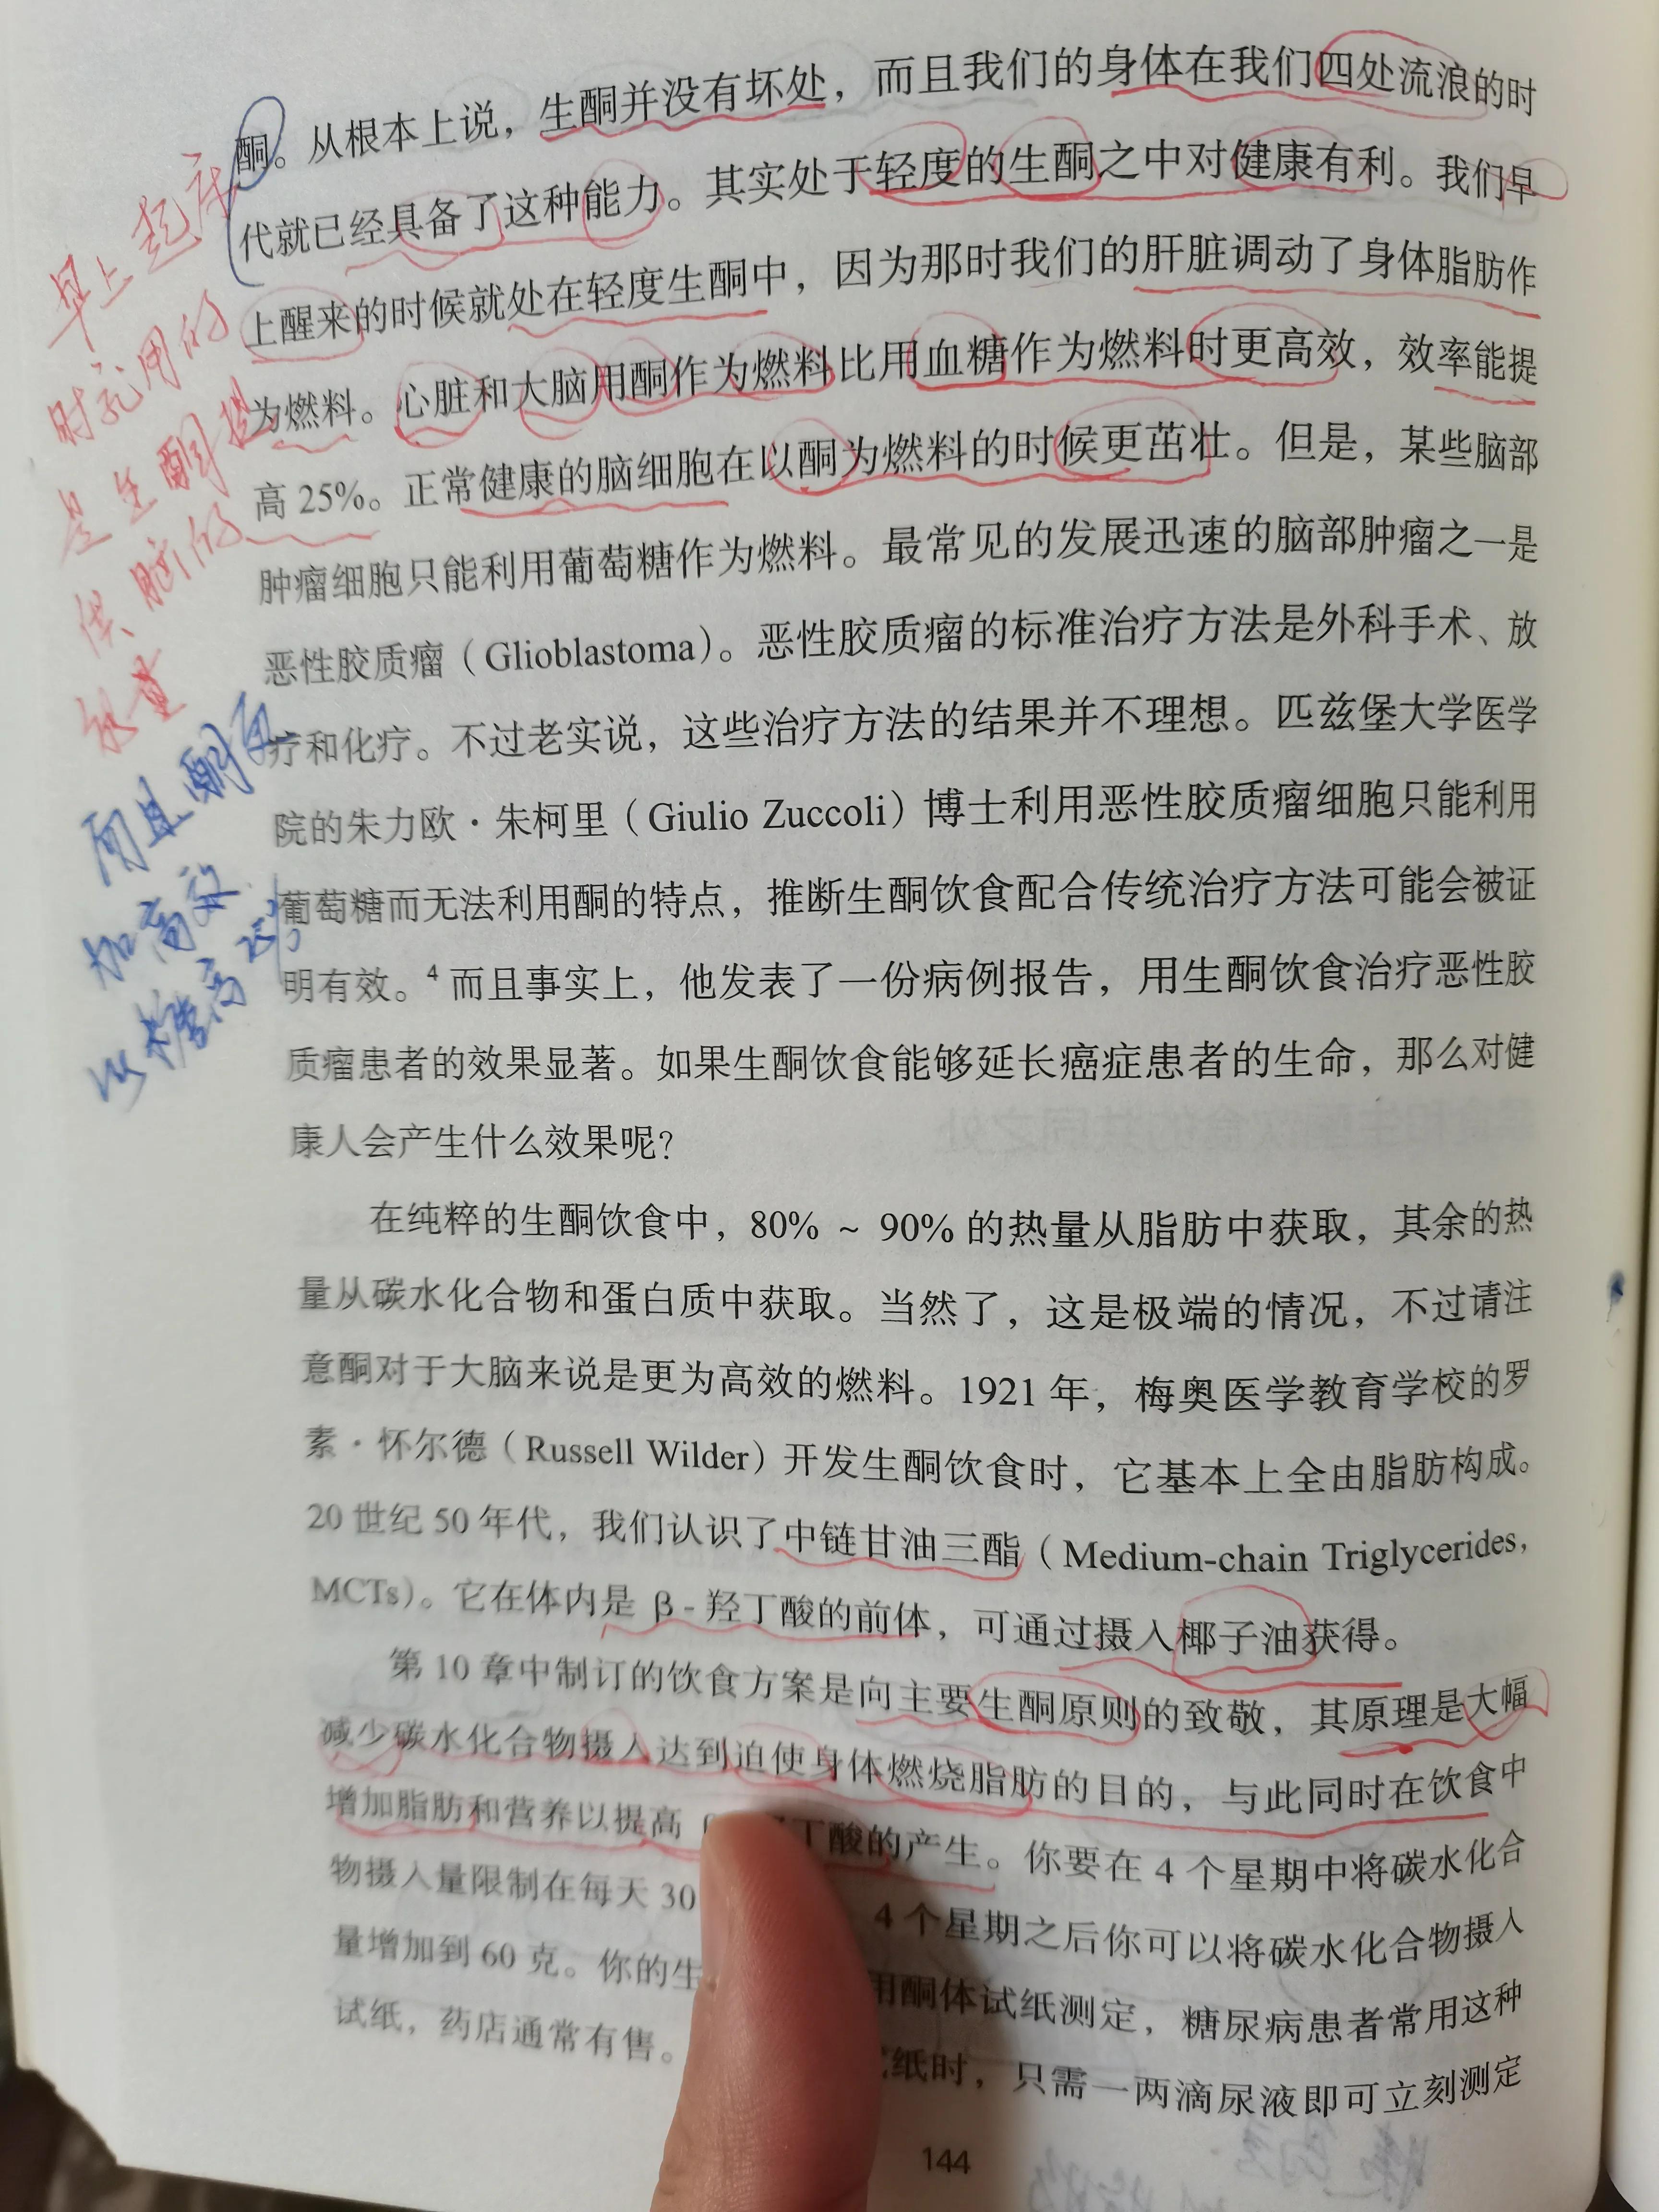 酮。从根本上说，生酮并没有坏处，而且我们的身体在我们四处流浪的时
代就已经具备了这种能力。其实处于轻度的生酮之中对健康有利。我们早
上醒来的时候就处在轻度生酮中，因为那时我们的肝脏调动了身体脂肪作
为燃料。心脏和大脑用酮作为燃料比用血糖作为燃料时更高效，效率能提
高 25%。正常健康的脑细胞在以酮为燃料的时候更茁壮。但是，某些脑部
肿瘤细胞只能利用葡萄糖作为燃料。最常见的发展迅速的脑部肿瘤之一是
恶性胶质瘤（Glioblastoma）。恶性胶质瘤的标准治疗方法是外科手术、放
疗和化疗。不过老实说，这些治疗方法的结果并不理想。匹兹堡大学医学
院的朱力欧·朱柯里（Giulio Zuccoli）博士利用恶性胶质瘤细胞只能利用
葡萄糖而无法利用酮的特点，推断生酮饮食配合传统治疗方法可能会被证
明有效。4 而且事实上，他发表了一份病例报告，用生酮饮食治疗恶性胶
质瘤患者的效果显著。如果生酮饮食能够延长癌症患者的生命，那么对健
康人会产生什么效果呢？
在纯粹的生酮饮食中，80% ~ 90% 的热量从脂肪中获取，其余的热
量从碳水化合物和蛋白质中获取。当然了，这是极端的情况，不过请注
意酮对于大脑来说是更为高效的燃料。1921 年，梅奥医学教育学校的罗
素·怀尔德（Russell Wilder）开发生酮饮食时，它基本上全由脂肪构成。
20 世纪 50 年代，我们认识了中链甘油三酯（Medium-chain Triglycerides，
MCTs）。它在体内是 β - 羟丁酸的前体，可通过摄入椰子油获得。
第 10 章中制订的饮食方案是向主要生酮原则的致敬，其原理是大幅
减少碳水化合物摄入达到迫使身体燃烧脂肪的目的，与此同时在饮食中
增加脂肪和营养以提高 丁酸的产生。你要在 4 个星期中将碳水化合
物摄入量限制在每天 30 4 个星期之后你可以将碳水化合物摄入
量增加到 60 克。你的生 用酮体试纸测定，糖尿病患者常用这种
试纸，药店通常有售。 纸时，只需一两滴尿液即可立刻测定
144
早上起床
时 用的
是生酮提
供、脑的
能量
而且酮更
加高效
比糖高 25%